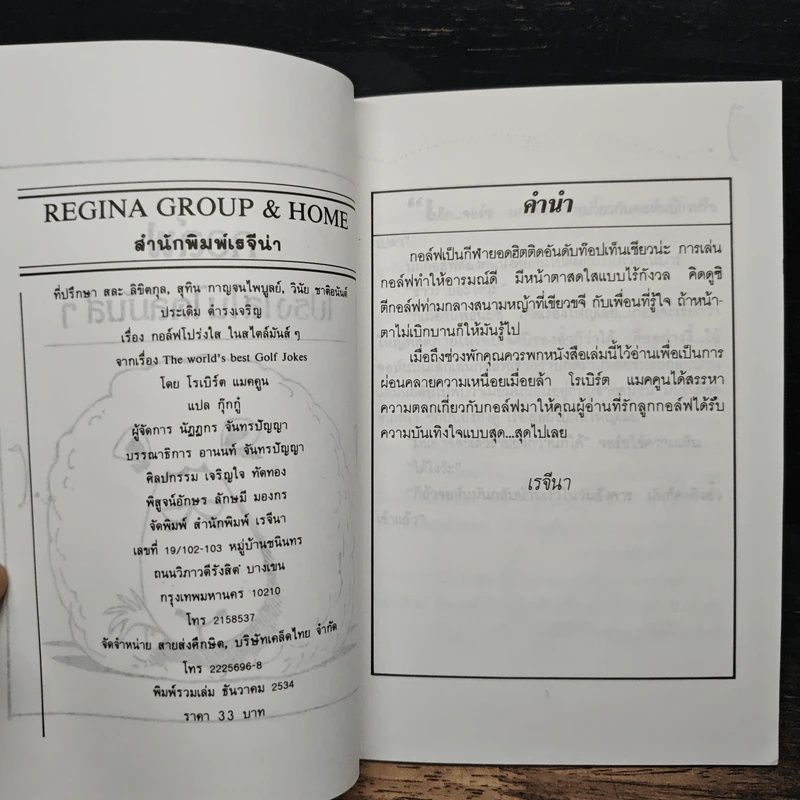 REGINA GROUP & HOME
สำนักพิมพ์เรจีน่า
ที่ปรึกษา สละ ลิขิตกุล, สุทิน กาญจนไพบูลย์, วินัย ชาติอนันต์
ประเดิม ดำรงเจริญ
เรื่อง กอล์ฟโปร่งใส ในสไตล์มันส์ ๆ
จากเรื่อง The world's best Golf Jokes
โดย โรเบิร์ต แมคคูน
แปล กุ๊กกู๋
ผู้จัดการ นัฏฏกร จันทรปัญญา
บรรณาธิการ อานนท์ จันทรปัญญา
ศิลปกรรม เจริญใจ ทัดทอง
พิสูจน์อักษร ลักษมี มองกร
จัดพิมพ์ สำนักพิมพ์ เรจีนา
เลขที่ 19/102-103 หมู่บ้านชนินทร
ถนนวิภาวดีรังสิต บางเขน
กรุงเทพมหานคร 10210
โทร 2158537
จัดจำหน่าย สายส่งศึกษิต, บริษัทเคล็ดไทย จำกัด
โทร 2225696-8
พิมพ์รวมเล่ม ธันวาคม 2534
ราคา 33 บาท
คำนำ
กอล์ฟเป็นกีฬายอดฮิตติดอันดับท๊อปเท็นเชียวน่ะ การเล่น
กอล์ฟทำให้อารมณ์ดี มีหน้าตาสดใสแบบไร้กังวล คิดดูซิ
ตีกอล์ฟท่ามกลางสนามหญ้าที่เขียวขจี กับเพื่อนที่รู้ใจ ถ้าหน้า-
ตาไม่เบิกบานก็ให้มันรู้ไป
เมื่อถึงช่วงพักคุณควรพกหนังสือเล่มนี้ไว้อ่านเพื่อเป็นการ
ผ่อนคลายความเหนื่อยเมื่อยล้า โรเบิร์ต แมคคูนได้สรรหา
ความตลกเกี่ยวกับกอล์ฟมาให้คุณผู้อ่านที่รักลูกกอล์ฟได้รับ
ความบันเทิงใจแบบสุด...สุดไปเลย
เรจีนา